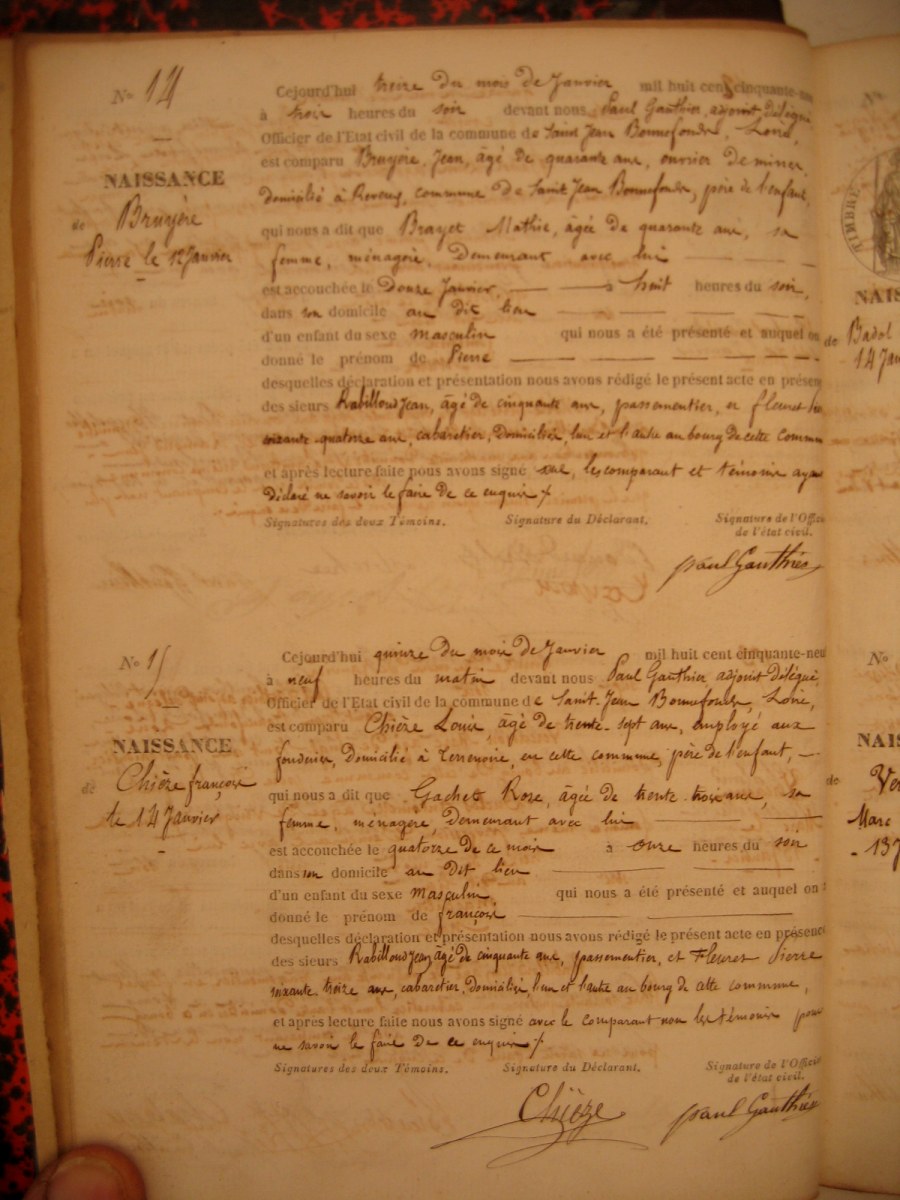 No 14
NAISSANCE
de Bruyère
Pierre le 12 Janvier
Cejourd'hui treize du mois de Janvier mil huit cent cinquante-neu
à trois heures du soir devant nous Paul Gauthier, adjoint délégué
Officier de l'Etat civil de la commune de Saint Jean Bonnefonds, Loire,
est comparu Bruyère, Jean, âgé de quarante ans, ouvrier de mines,
domicilié à Reveux, commune de Saint Jean Bonnefonds, père de l'enfant,
qui nous a dit que Brayet Mathie, âgée de quarante ans, sa
femme, ménagère, demeurant avec lui
est accouchée le Douze Janvier, à huit heures du soir,
dans son domicile au dit lieu
d'un enfant du sexe masculin qui nous a été présenté et auquel on
donné le prénom de Pierre
desquelles déclaration et présentation nous avons rédigé le présent acte en présen
des sieurs Rabilloud Jean, âgé de cinquante ans, passementier, et fleuret
soixante-quatorze ans, cabaretier, domiciliés l'un et l'autre au bourg de cette commun
et après lecture faite nous avons signé seul, les comparant et témoins ayan
déclaré ne savoir le faire de ce enquis /.
Signatures des deux Témoins. Signature du Déclarant. Signature de l'Offic
de l'état civil.
paul Gauthier
No 15
NAISSANCE
de Chièze françois
le 14 Janvier
Cejourd'hui quinze du mois de Janvier mil huit cent cinquante-neu
à neuf heures du matin devant nous Paul Gauthier adjoint délégué,
Officier de l'Etat civil de la commune de Saint-Jean Bonnefonds, Loire,
est comparu Chièze Louis, âgé de trente-sept ans, employé aux
fonderies, domicilié à Terrenoire, en cette commune, père de l'enfant,
qui nous a dit que Gachet Rose, âgée de trente-trois ans, sa
femme, ménagère, demeurant avec lui
est accouchée le quatorze de ce mois à onze heures du soir
dans son domicile au dit lieu
d'un enfant du sexe masculin, qui nous a été présenté et auquel on
donné le prénom de françois
desquelles déclaration et présentation nous avons rédigé le présent acte en présenc
des sieurs Rabilloud Jean, âgé de cinquante ans, passementier, et Fleuret Pierre
soixante-treize ans, cabaretier, domiciliés, l'un et l'autre au bourg de cette commune,
et après lecture faite nous avons signé avec le comparant non les témoins pour
ne savoir le faire de ce enquis /.
Signatures des deux Témoins. Signature du Déclarant. Signature de l'Offic
de l'état civil.
Chièze
paul Gauthier
TIMBRE
NAIS
de Badol
14 Jan
No
NAIS
de Ver
Marc
13